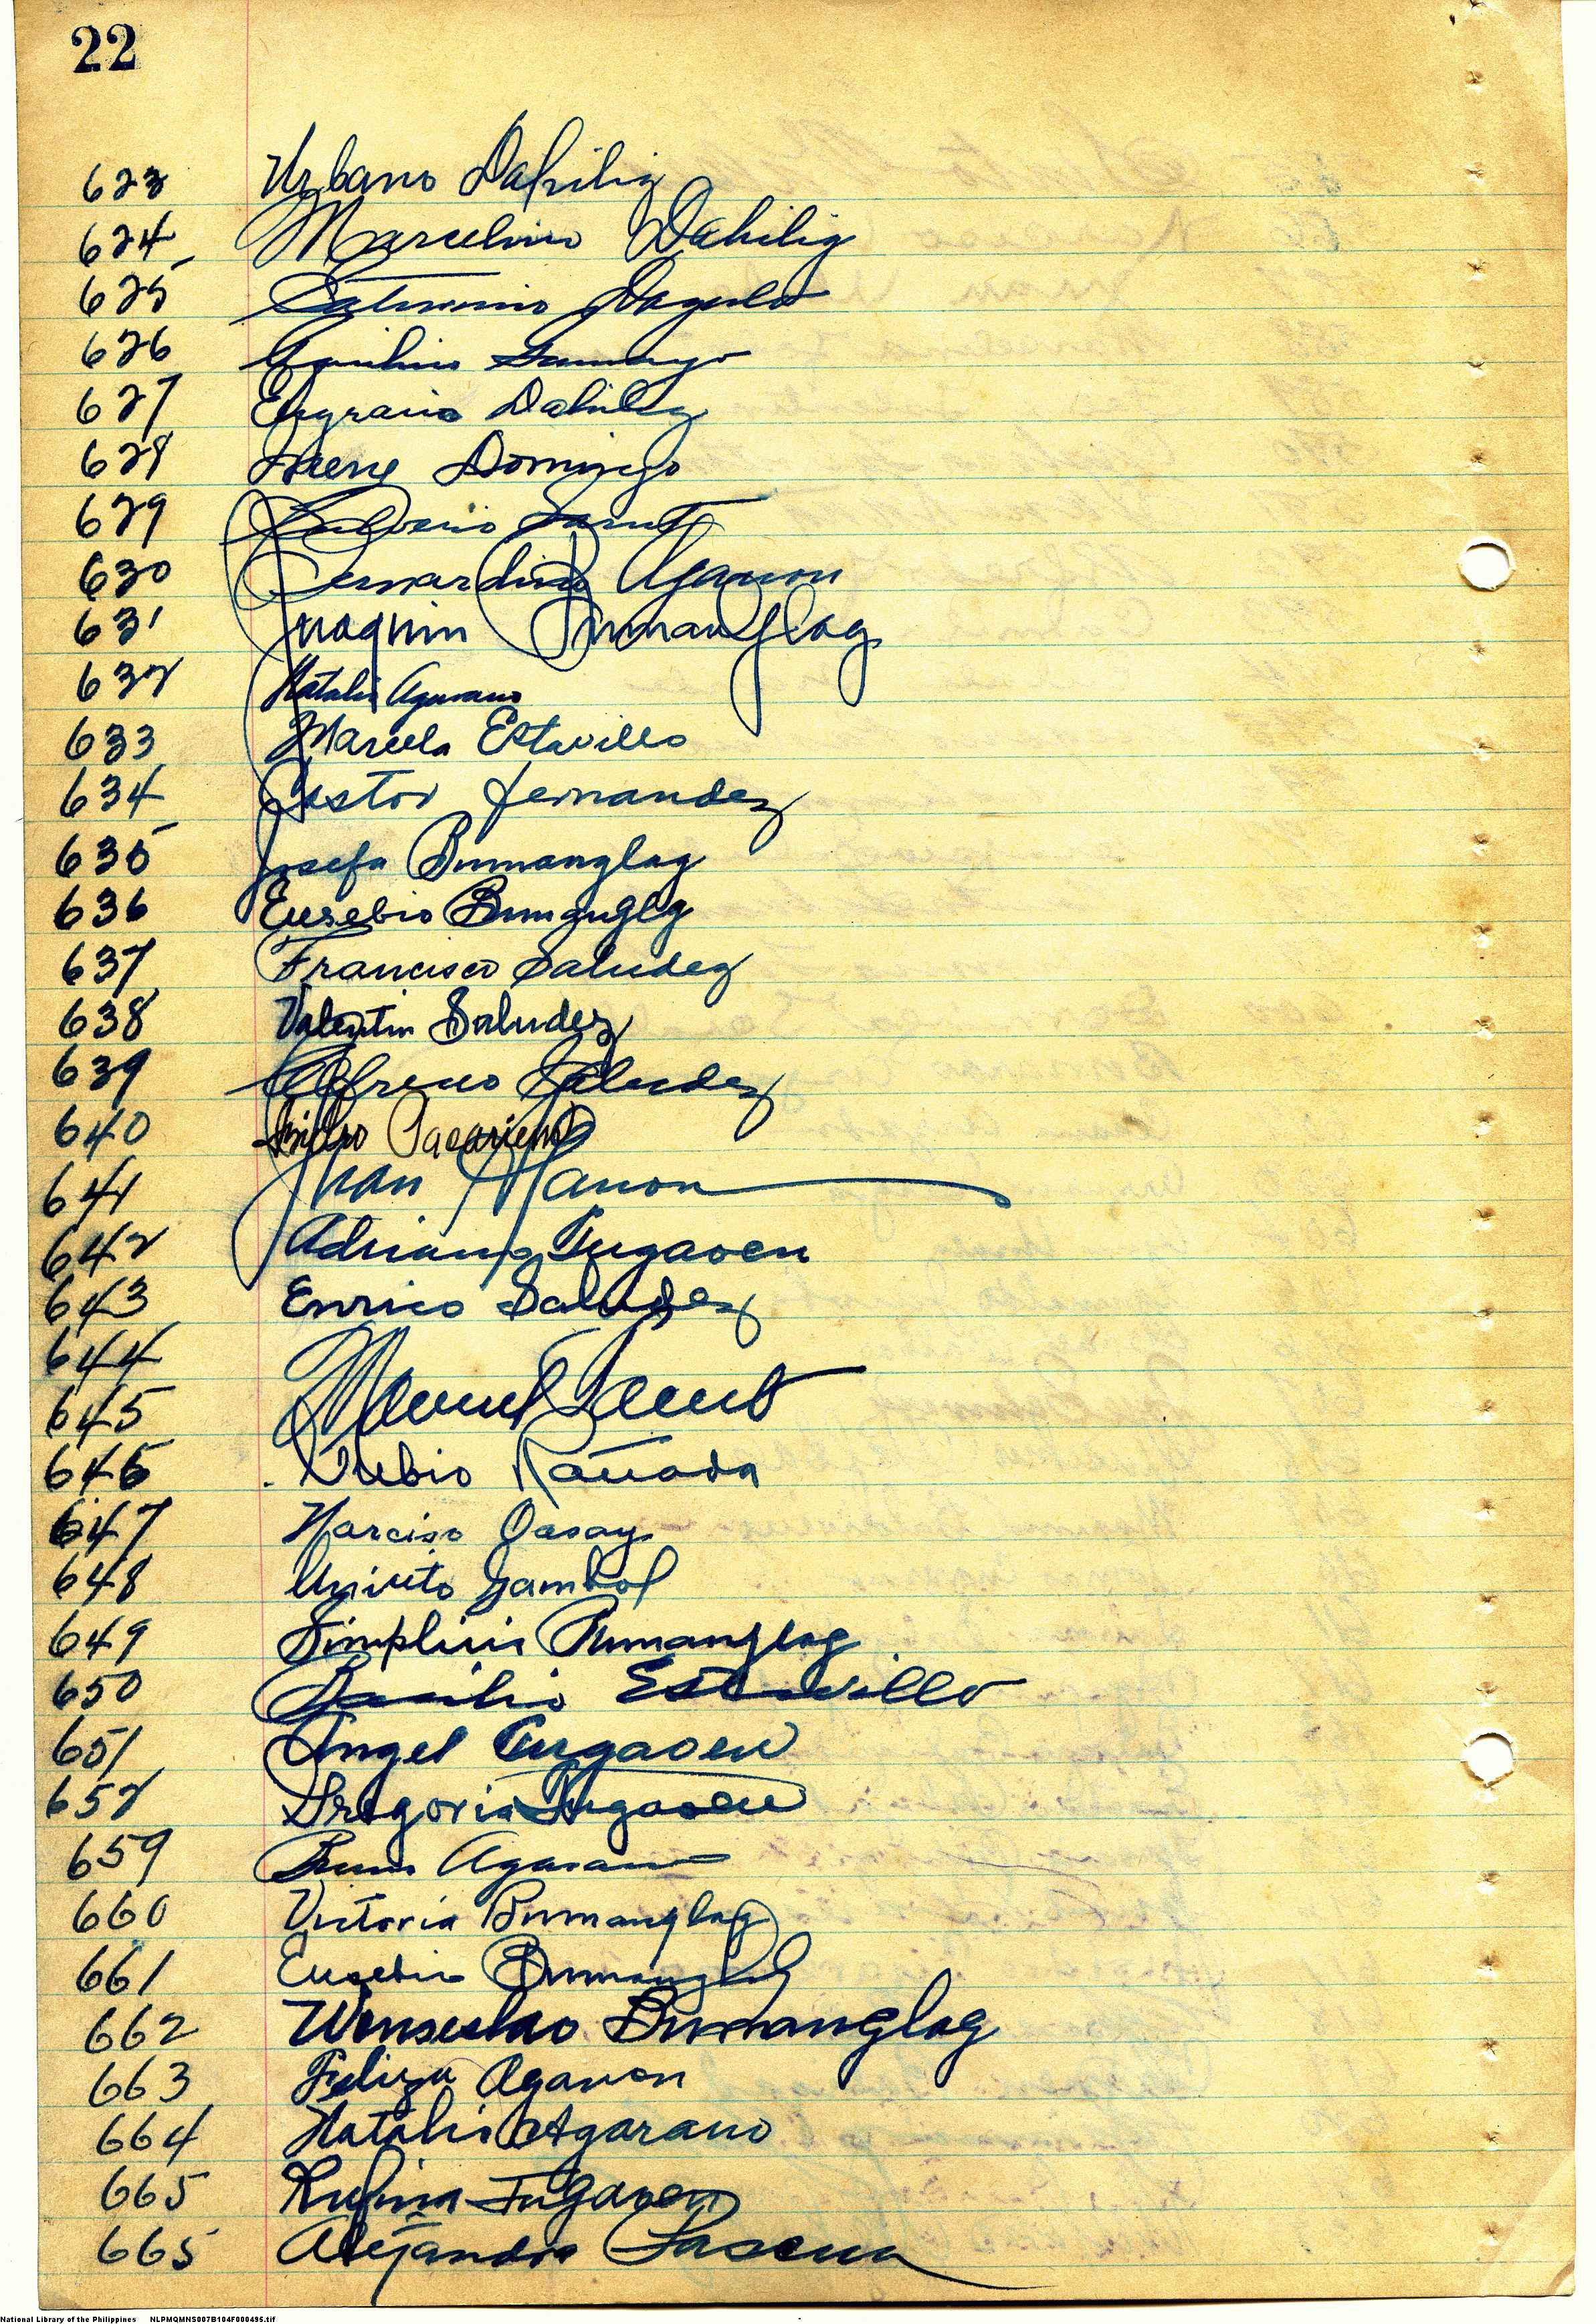 22
623 Urbano Dahilig
624 Marcelino Dahilig
625 Saturnino Dagulo
626
627 Engracio Dahilig
628 Irene Domingo
629
630 Bernardino Aganon
631 Juaquin Bumanglag
632 Natalio Agarano
633 Marcela Estavillo
634 Castor Fernandez
635 Josefa Bumanglag
636 Eusebio Bumanglag
637 Francisco Saludez
638 Valentin Saludez
639 Alfreuo Saludez
640 Isidro
641 Juan Manon
642 Adriano Tugaoen
643 Enrico Saludez
644
645 Manuel
646 Rañada
647 Narciso Oasay
648 Gambol
649 Simplicio Bumanglag
650 Basilio Estavillo
651 Angel Tugaoen
652 Gregoria Tugaoen
659 Agarano
660 Victoria Bumanglag
661 Eusebio Bumanglag
662 Wenseslao Bumanglag
663 Feliza Aganon
664 Natalio Agarano
665 Rufina Tugaoen
665 Alejandra
National Library of the Philippines NLPMQMNS007B104F000495.tif